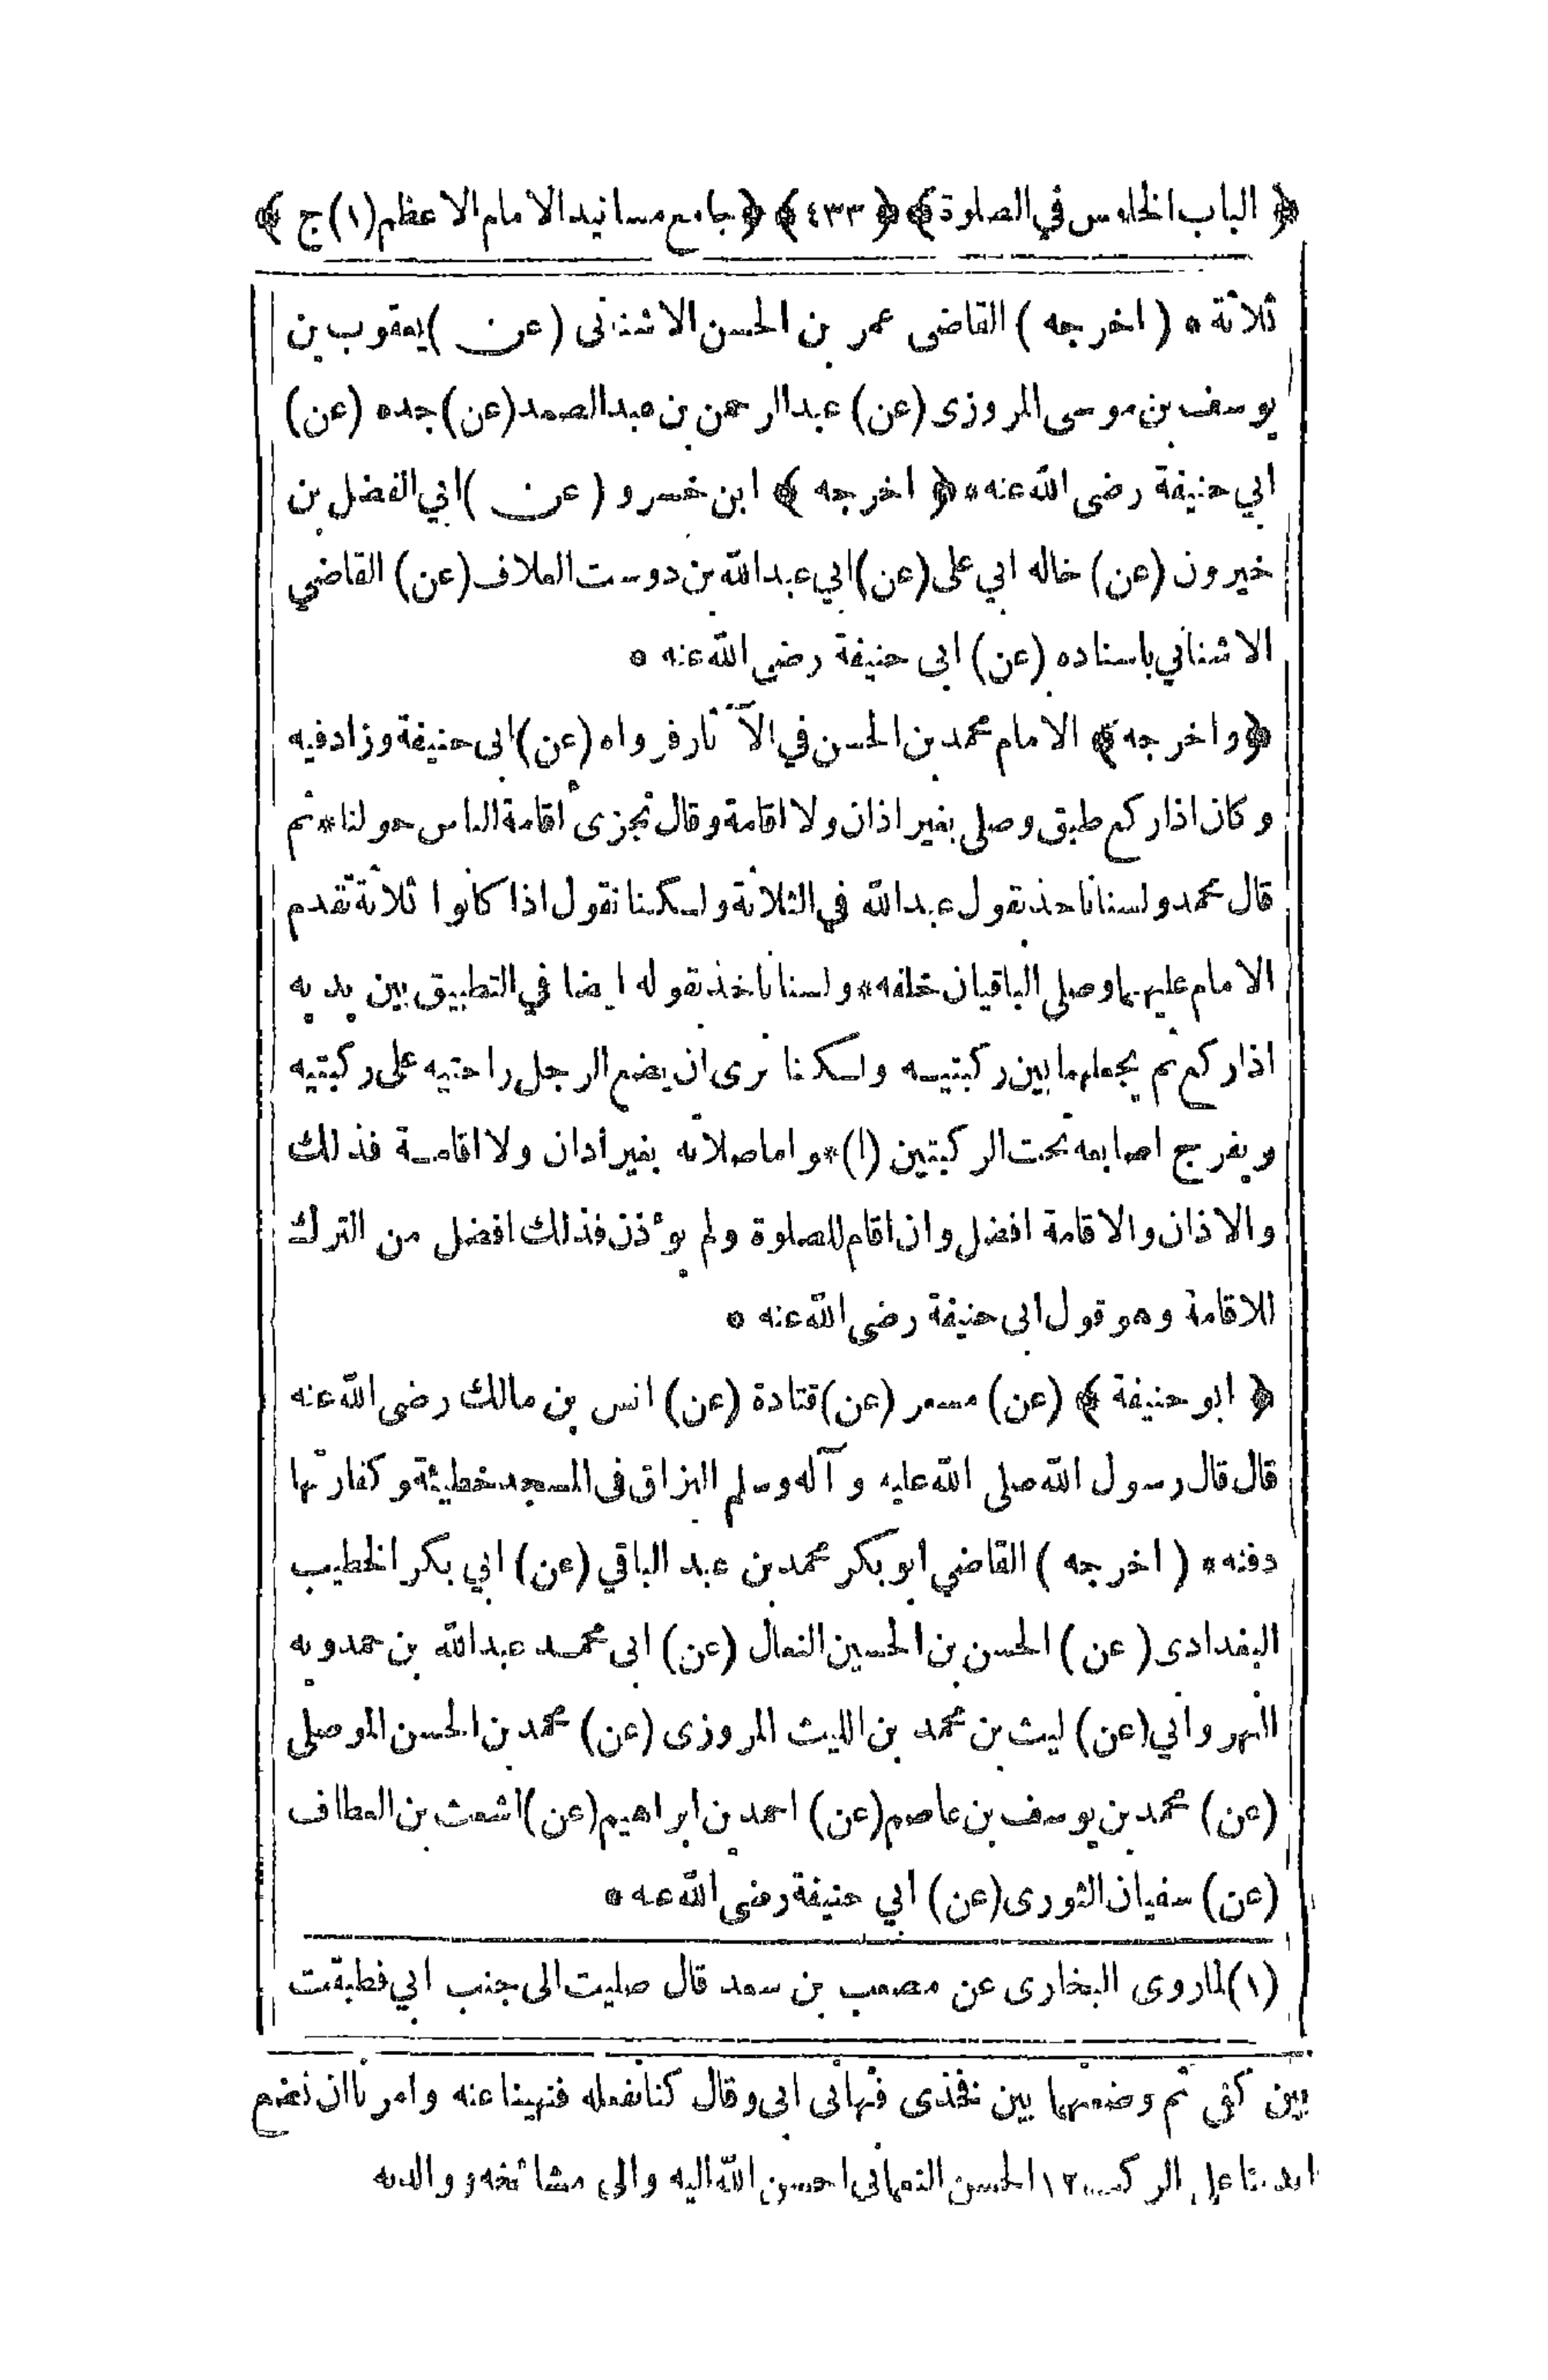 ﴿ الباب الخامس في الصلوة ﴾ ﴿ ٤٣٣ ﴾ ﴿ جامع مسانيد الامام الاعظم (١) ج ﴾
ثلاثة * ( اخرجه ) القاضى عمر بن الحسن الاشنانى (عن) يعقوب بن
يوسف بن موسى المروزى (عن) عبدالرحمن بن عبدالصمد (عن) جده (عن)
ابي حنيفة رضى الله عنه * ﴿ اخرجه ﴾ ابن خسرو (عن) ابي الفضل بن
خيرون (عن) خاله ابي على (عن) ابي عبدالله بن دوست العلاف (عن) القاضي
الاشناني باسناده (عن) ابى حنيفة رضى الله عنه *
﴿ واخرجه ﴾ الامام محمد بن الحسن في الآثار فرواه (عن) ابى حنيفة وزاد فيه
وكان اذا ركع طبق وصلى بغير اذان ولا اقامة وقال تجزئ اقامة الناس حولنا * ثم
قال محمد ولسنا ناخذ بقول عبدالله في الثلاثة ولكنا نقول اذا كانوا ثلاثة تقدم
الامام عليهما وصلى الباقيان خلفه * ولسنا ناخذ بقوله ايضا في التطبيق بين يديه
اذا ركع ثم يجعلهما بين ركبتيه ولكنا نرى ان يضع الرجل راحتيه على ركبتيه
ويفرج اصابعه تحت الركبتين (١) * واما صلاته بغير أذان ولا اقامة فذلك
والاذان والاقامة افضل وان اقام للصلوة ولم يؤذن فذلك افضل من الترك
للاقامة وهو قول ابى حنيفة رضى الله عنه *
﴿ ابو حنيفة ﴾ (عن) مسعر (عن) قتادة (عن) انس بن مالك رضى الله عنه
قال قال رسول الله صلى الله عليه وآله وسلم البزاق فى المسجد خطيئة وكفارتها
دفنه * ( اخرجه ) القاضي ابو بكر محمد بن عبد الباقي (عن) ابي بكر الخطيب
البغدادى (عن) الحسن بن الحسين النعال (عن) ابى محمد عبدالله بن حمدويه
النهرواني (عن) ليث بن محمد بن الليث المروزى (عن) محمد بن الحسن الموصلى
(عن) محمد بن يوسف بن عاصم (عن) احمد بن ابراهيم (عن) اشعث بن العطاف
(عن) سفيان الثورى (عن) ابي حنيفة رضى الله عنه *
(١) لما روى البخارى عن مصعب بن سعد قال صليت الى جنب ابي فطبقت
بين كفى ثم وضعتهما بين فخذى فنهانى ابى وقال كنا نفعله فنهينا عنه وامرنا ان نضع
ايدينا على الركب ١٢ الحسن النعمانى احسن الله اليه والى مشائخه ووالديه